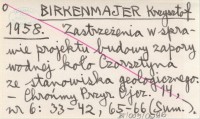 BIRKENMAJER Krzysztof
1958. Zastrzeżenia w spra-
wie projektu budowy zapory
wodnej koło Czorsztyna
ze stanowiska geologicznego.
- Chrońmy Przyr. Ojcz. 14,
nr 6: 33-42, 65-66 (Sum.).